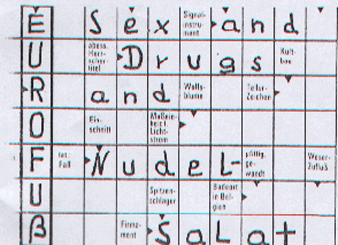 E Sex Signal-instru-ment and
U abess. Herr-schertitel Drugs Kult-
R and Wolfs- Telur.-Zeichen
O Ein-schnitt Maßein-heit Licht-strom
F lat.: Fall NudeL- völlig, ge-wandt Weser-Zufluß
U Spitzen-schlager Badeort in Bel-gien
ß Firma- SaLat